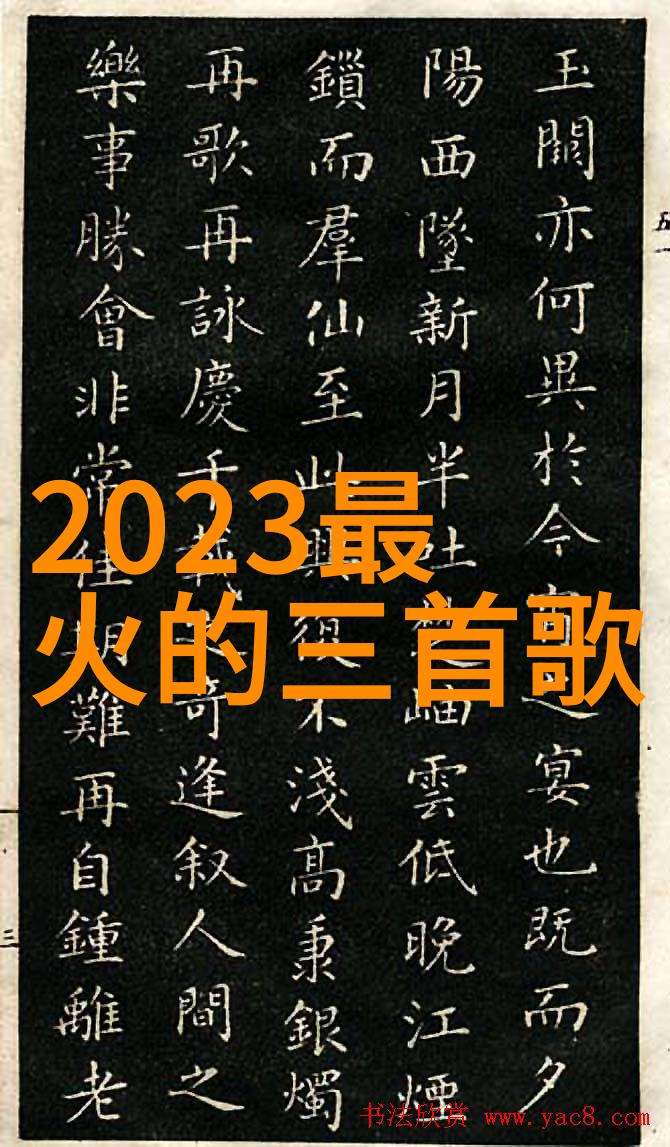 玉闕亦何異於今宵之宴也既而夕
陽西墜新月半吐楚岫雲低晚江煙
鎖而羣仙至此興復不淺高秉銀燭
再歌再詠慶千載之奇逢叙人間之
樂事勝會非常佳期難再自鍾離老
2023最
火的三首歌
三
书法欣赏 www.yac8.com